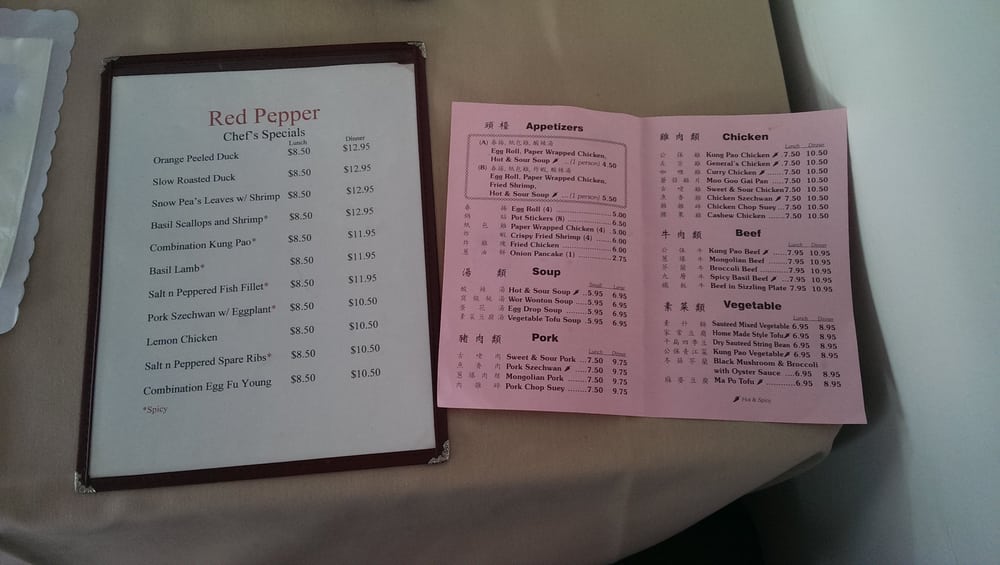 Red Pepper
Chef's Specials
Lunch Dinner
Orange Peeled Duck $8.50 $12.95
Slow Roasted Duck $8.50 $12.95
Snow Pea's Leaves w/ Shrimp $8.50 $12.95
Basil Scallops and Shrimp* $8.50 $12.95
Combination Kung Pao* $8.50 $11.95
Basil Lamb* $8.50 $11.95
Salt n Peppered Fish Fillet* $8.50 $11.95
Pork Szechwan w/ Eggplant* $8.50 $10.50
Lemon Chicken $8.50 $10.50
Salt n Peppered Spare Ribs* $8.50 $10.50
Combination Egg Fu Young $8.50 $10.50
*Spicy
頭檯 Appetizers
(A) 春捲, 紙包雞, 酸辣湯
Egg Roll, Paper Wrapped Chicken,
Hot & Sour Soup ... (1 person) 4.50
(B) 春捲, 紙包雞, 炸蝦, 酸辣湯
Egg Roll, Paper Wrapped Chicken,
Fried Shrimp,
Hot & Sour Soup ... (1 person) 5.50
春捲 Egg Roll (4) 5.00
鍋貼 Pot Stickers (8) 6.50
紙包雞 Paper Wrapped Chicken (4) 5.00
炸蝦 Crispy Fried Shrimp (4) 6.00
炸雞塊 Fried Chicken 6.00
蔥油餅 Onion Pancake (1) 2.75
湯類 Soup
Small Large
酸辣湯 Hot & Sour Soup 5.95 6.95
窩餛飩湯 Wor Wonton Soup 5.95 6.95
蛋花湯 Egg Drop Soup 5.95 6.95
素菜豆腐湯 Vegetable Tofu Soup 5.95 6.95
豬肉類 Pork
Lunch Dinner
古咾肉 Sweet & Sour Pork 7.50 9.75
魚香肉 Pork Szechwan 7.50 9.75
蔥爆肉絲 Mongolian Pork 7.50 9.75
肉雜碎 Pork Chop Suey 7.50 9.75
雞肉類 Chicken
Lunch Dinner
公保雞 Kung Pao Chicken 7.50 10.50
左宗雞 General's Chicken 7.50 10.50
咖喱雞 Curry Chicken 7.50 10.50
蘑菇雞片 Moo Goo Gai Pan 7.50 10.50
古咾雞 Sweet & Sour Chicken 7.50 10.50
魚香雞 Chicken Szechwan 7.50 10.50
雞雜碎 Chicken Chop Suey 7.50 10.50
腰果雞 Cashew Chicken 7.50 10.50
牛肉類 Beef
Lunch Dinner
公保牛 Kung Pao Beef 7.95 10.95
蔥爆牛 Mongolian Beef 7.95 10.95
芥蘭牛 Broccoli Beef 7.95 10.95
九層牛 Spicy Basil Beef 7.95 10.95
鐵板牛 Beef in Sizzling Plate 7.95 10.95
素菜類 Vegetable
Lunch Dinner
素什錦 Sauteed Mixed Vegetable 6.95 8.95
家常豆腐 Home Made Style Tofu 6.95 8.95
干扁四季豆 Dry Sauteed String Bean 6.95 8.95
公保青江菜 Kung Pao Vegetable 6.95 8.95
冬菇芥蘭 Black Mushroom & Broccoli
with Oyster Sauce 6.95 8.95
麻婆豆腐 Ma Po Tofu 6.95 8.95
Hot & Spicy